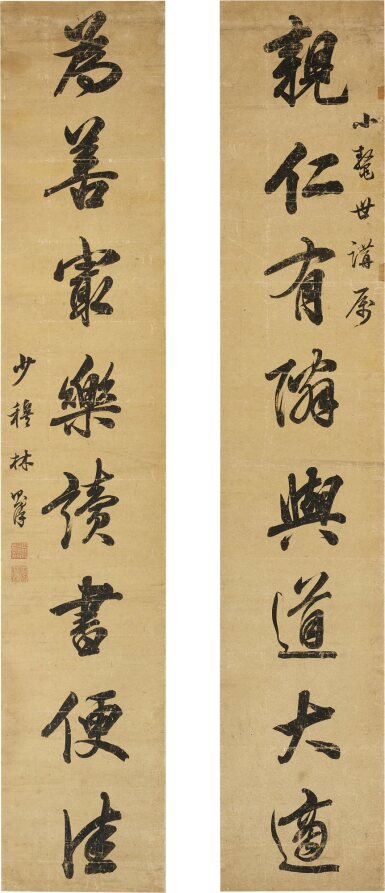 小鼇世講屬
親仁有隣與道大適
為善㝡樂讀書便佳
少穆林則徐